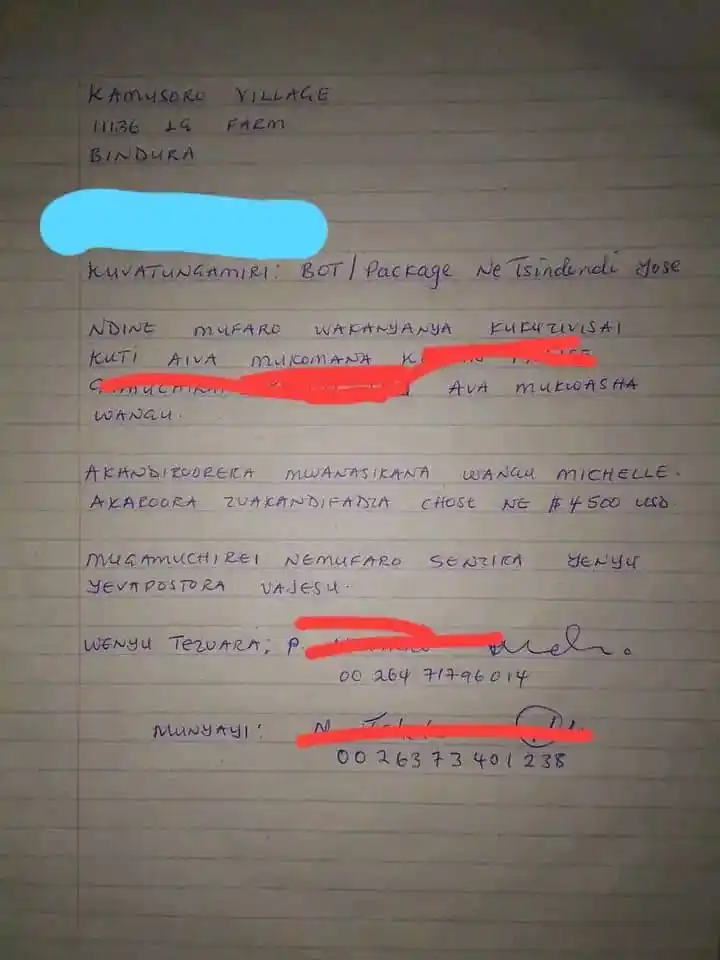 KAMUSORO VILLAGE
11136 LG FARM
BINDURA
KUVATUNGAMIRI: BOT/Package Ne Tsindendi Yose
NDINE MUFARO WAKANYANYA KUKUZIVISAI
KUTI AIVA MUKOMANA
AVA MUKWASHA
WANGU.
AKANDIROORERA MWANASIKANA WANGU MICHELLE.
AKAROORA ZVAKANDIFADZA CHOSE NE $4500 USD.
MUGAMUCHIREI NEMUFARO SENZIRA YENYU
YEVAPOSTORA VAJESU.
WENYU TEZVARA; P.
00 264 71796014
MUNYAYI:
00 263 73 401 238